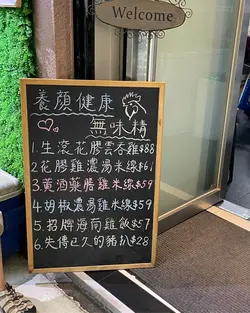 Welcome
養顏健康
無味精
1.生滾花膠雲吞雞$88
2.花膠雞濃湯米線$61
3.黄酒藥膳雞米線$59
4.胡椒濃湯雞米線$59
5.招牌海南雞飯$57
6.失傳已久的豬扒$28